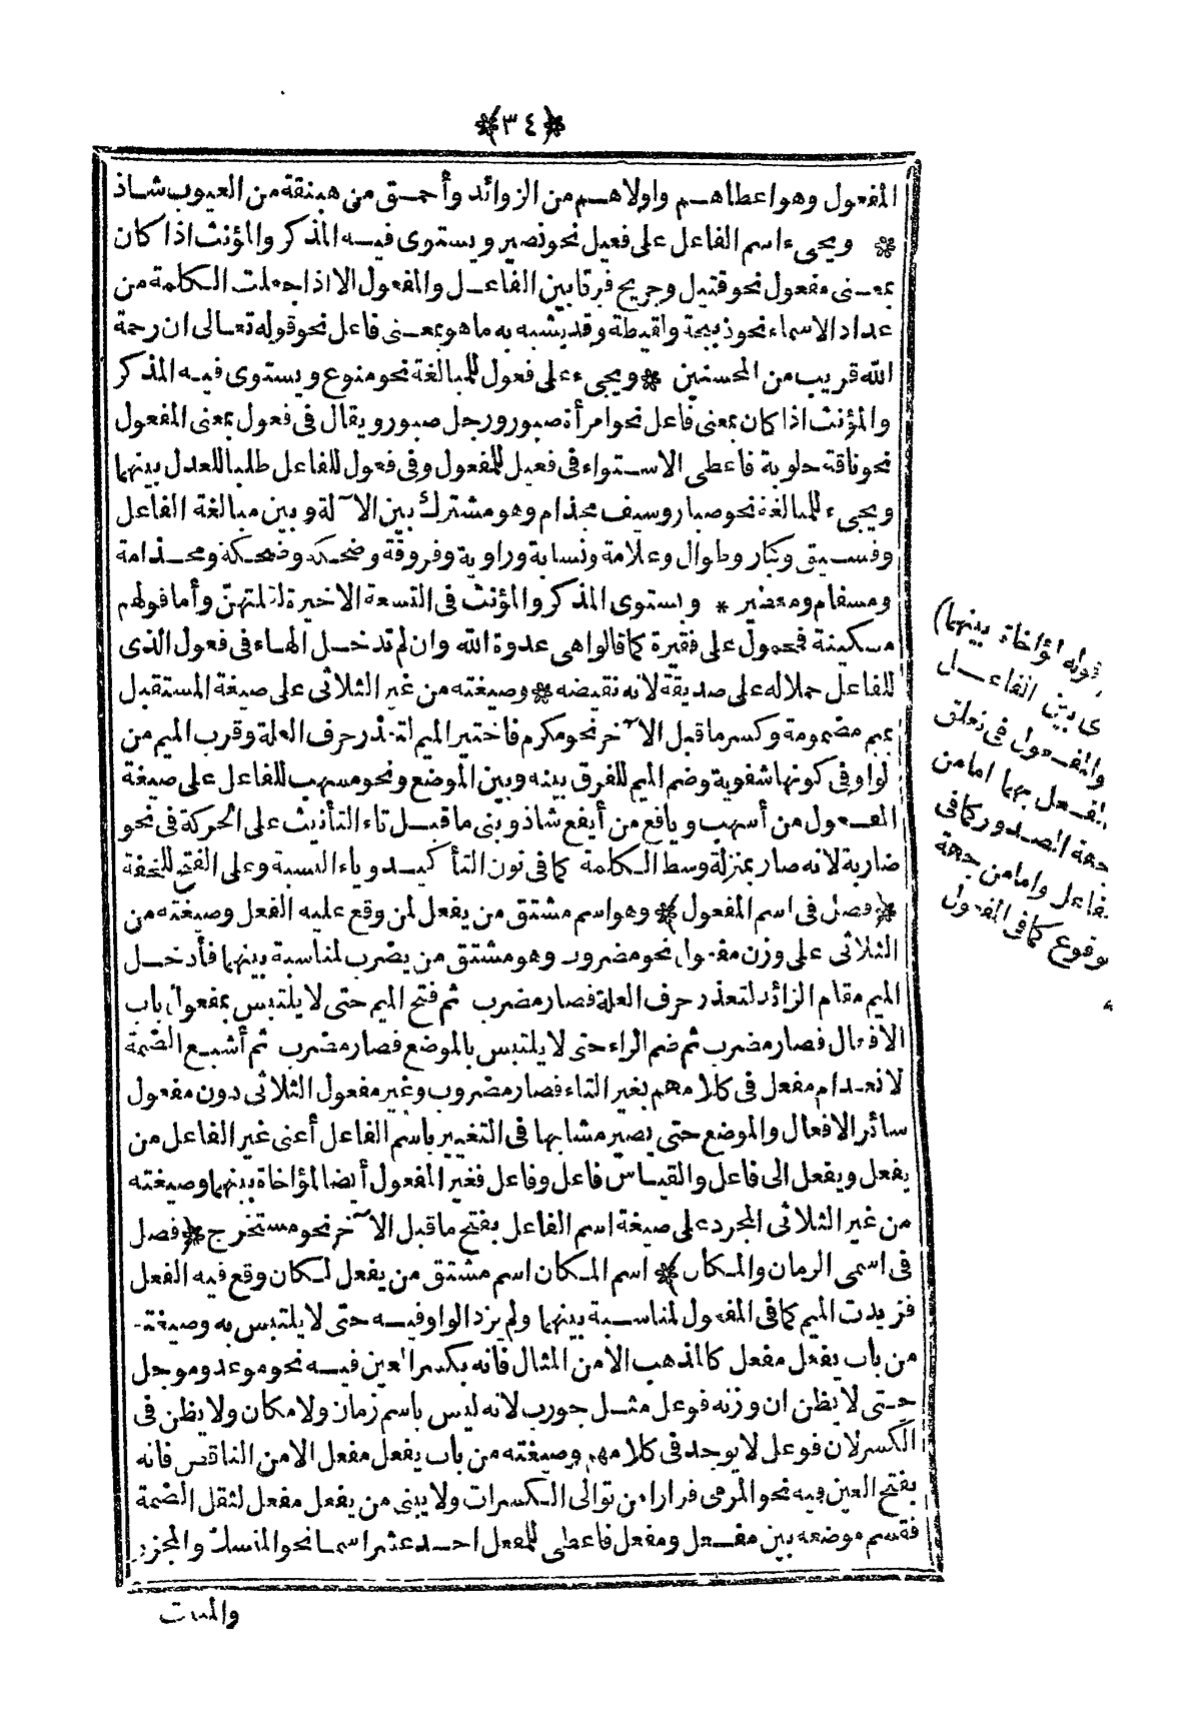 ﴿٣٤﴾
المفعول وهو اعطاهم واولاهم من الزوائد وأحمق من هبنقة من العيوب شاذ
* ويجىء اسم الفاعل على فعيل نحو نصير ويستوى فيه المذكر والمؤنث اذا كان
بمعنى مفعول نحو قتيل وجريح فرقا بين الفاعل والمفعول الا اذا جعلت الكلمة من
عداد الاسماء نحو ذبيحة ولقيطة وقد يشبه به ما هو بمعنى فاعل نحو قوله تعالى ان رحمة
الله قريب من المحسنين * ويجىء على فعول للمبالغة نحو منوع ويستوى فيه المذكر
والمؤنث اذا كان بمعنى فاعل نحو امرأة صبور ورجل صبور ويقال فى فعول بمعنى المفعول
نحو ناقة حلوبة فاعطى الاستواء فى فعيل للمفعول وفى فعول للفاعل طلبا للعدل بينهما
ويجىء للمبالغة نحو صبار وسيف مجذام وهو مشترك بين الآلة وبين مبالغة الفاعل
وفسيق وكبار وطوال وعلامة ونسابة وراوية وفروقة وضحكة وضحكة ومجذامة
ومسقام ومعطير * ويستوى المذكر والمؤنث فى التسعة الاخيرة لقلتهن وأما قولهم
مسكينة فمحمول على فقيرة كما قالوا هى عدوة الله وان لم تدخل الهاء فى فعول الذى
للفاعل حملا له على صديقة لانه نقيضه * وصيغته من غير الثلاثى على صيغة المستقبل
بميم مضمومة وكسر ما قبل الآخر نحو مكرم فاختير الميم لتعذر حرف العلة وقرب الميم من
الواو فى كونها شفوية وضم الميم للفرق بينه وبين الموضع ونحو مسهب للفاعل على صيغة
المفعول من أسهب ويافع من أيفع شاذ وبنى ما قبل تاء التأنيث على الحركة فى نحو
ضاربة لانه صار بمنزلة وسط الكلمة كما فى نون التأكيد وياء النسبة وعلى الفتح للخفة
﴿فصل فى اسم المفعول﴾ وهو اسم مشتق من يفعل لمن وقع عليه الفعل وصيغته من
الثلاثى على وزن مفعول نحو مضروب وهو مشتق من يضرب لمناسبة بينهما فأدخل
الميم مقام الزائد لتعذر حرف العلة فصار مضرب ثم فتح الميم حتى لا يلتبس بمفعول باب
الافعال فصار مضرب ثم ضم الراء حتى لا يلتبس بالموضع فصار مضرب ثم أشبع الضمة
لانعدام مفعل فى كلامهم بغير التاء فصار مضروب وغير مفعول الثلاثى دون مفعول
سائر الافعال والموضع حتى يصير مشابها فى التغيير باسم الفاعل أعنى غير الفاعل من
يفعل ويفعل الى فاعل والقياس فاعل وفاعل فغير المفعول أيضا لمؤاخاة بينهما وصيغته
من غير الثلاثى المجرد على صيغة اسم الفاعل بفتح ما قبل الآخر نحو مستخرج ﴿فصل
فى اسمى الزمان والمكان﴾ اسم المكان اسم مشتق من يفعل لمكان وقع فيه الفعل
فزيدت الميم كما فى المفعول لمناسبة بينهما ولم يزد الواو فيه حتى لا يلتبس به وصيغته
من باب يفعل مفعل كالمذهب الا من المثال فانه بكسر العين فيه نحو موعد وموجل
حتى لا يظن ان وزنه فوعل مثل جورب لانه ليس باسم زمان ولا مكان ولا يظن فى
الكسر لان فوعل لا يوجد فى كلامهم وصيغته من باب يفعل مفعل الا من الناقص فانه
بفتح العين فيه نحو المرمى فرارا من توالى الكسرات ولا يبنى من يفعل مفعل لثقل الضمة
فقسم موضعه بين مفعل ومفعل فاعطى للمفعل احد عشر اسما نحو المنسك والمجزر
قوله لمؤاخاة بينهما)
ى بين الفاعل
والمفعول فى تعلق
الفعل بهما اما من
جهة الصدور كما فى
لفاعل واما من جهة
لوقوع كما فى المفعول
والمنبت